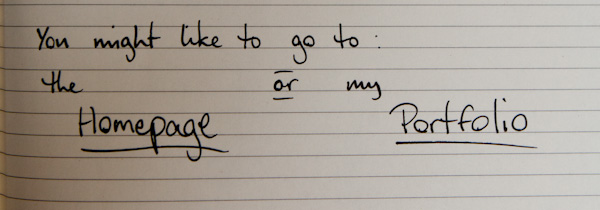 You might like to go to :
the or my
Homepage Portfolio